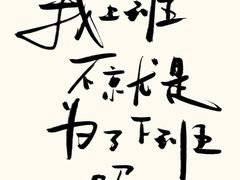 我上班
不就是
为了下班